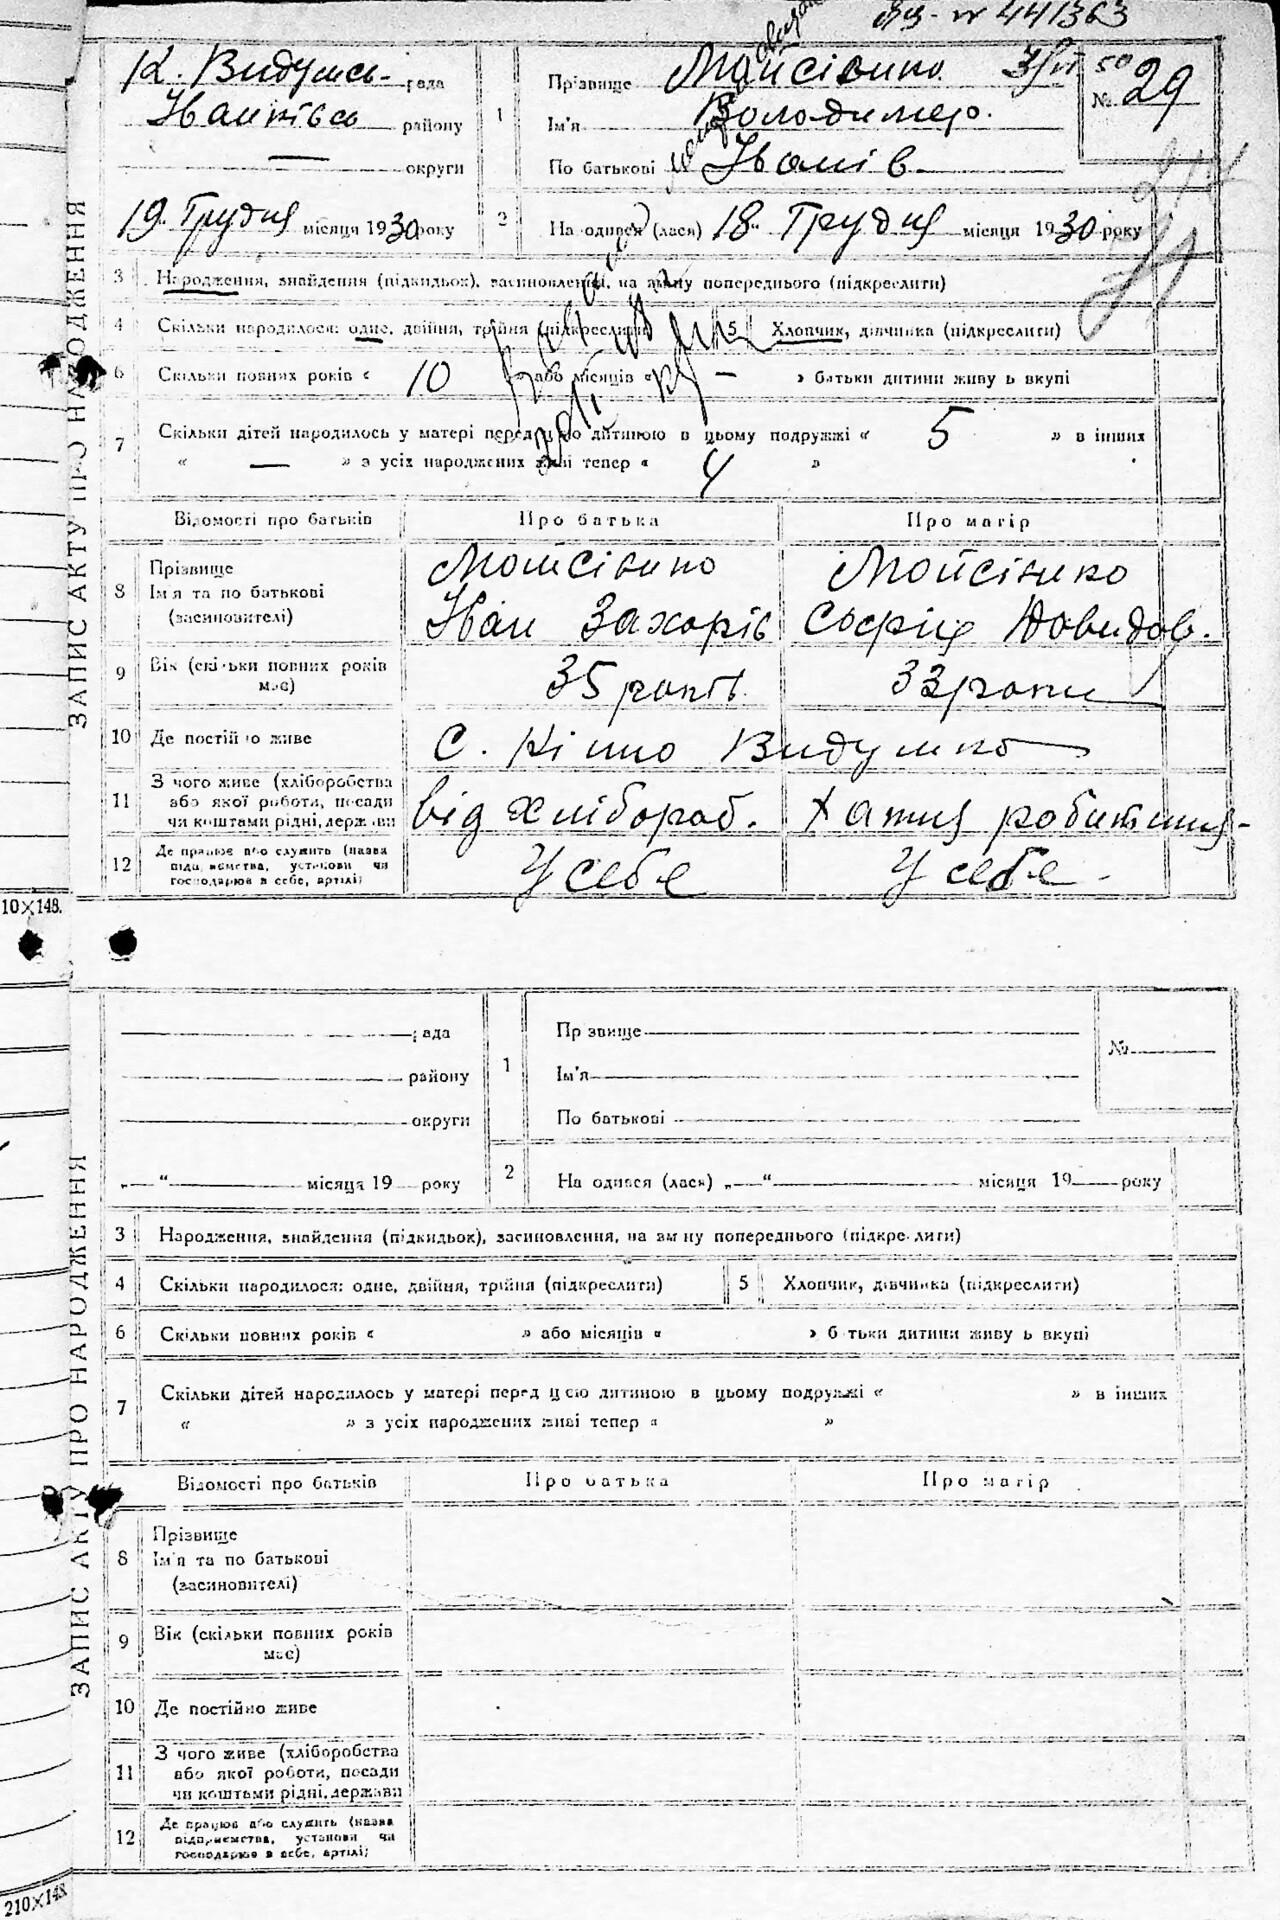 № 441363
ЗАПИС АКТУ ПРО НАРОДЖЕННЯ
К. Видумсь- рада
Іванківсь району
— округи
19 Грудня місяця 1930 року
1
Прізвище Мойсієнко
Ім'я Володимер.
По батькові Іванів
№ 29
2
На одився (лася) 18 Грудня місяця 1930 року
3 Народження, знайдення (підкидьок), засиновлення, на зміну попереднього (підкреслити)
4 Скільки народилося: одне, двійня, трійня (підкреслити) 5 Хлопчик, дівчинка (підкреслити)
6 Скільки повних років « 10 » або місяців « — » батьки дитини живу ь вкупі
7 Скільки дітей народилось у матері перед цією дитиною в цьому подружжі « 5 » в інших
« — » з усіх народжених живі тепер « 4 »
Відомості про батьків Про батька Про матір
8 Прізвище
Ім'я та по батькові
(засиновителі)
Мойсієнко
Іван Захорів
Мойсієнко
Софія Довидов.
9 Вік (скільки повних років має) 35 років. 33 роки
10 Де постійно живе С. Кішно Видумко
11 З чого живе (хліборобства
або якої роботи, посади
чи коштами рідні, держави
від хлібороб. Хатня робитниця-
12 Де працює або служить (назва
підприємства, установи чи
господарює в себе, артілі)
У себе У себе -
10×148.
ЗАПИС АКТУ ПРО НАРОДЖЕННЯ
рада
району
округи
„ “ місяця 19 року
1
Пр звище
Ім'я
По батькові
№
2
На одився (лася) „ “ місяця 19 року
3 Народження, знайдення (підкидьок), засиновлення, на зміну попереднього (підкреслити)
4 Скільки народилося: одне, двійня, трійня (підкреслити) 5 Хлопчик, дівчинка (підкреслити)
6 Скільки повних років « » або місяців « » б тьки дитини живу ь вкупі
7 Скільки дітей народилось у матері перед цією дитиною в цьому подружжі « » в інших
« » з усіх народжених живі тепер « »
Відомості про батьків Про батька Про матір
8 Прізвище
Ім'я та по батькові
(засиновителі)
9 Вік (скільки повних років
має)
10 Де постійно живе
11 З чого живе (хліборобства
або якої роботи, посади
чи коштами рідні, держави
12 Де працює або служить (назва
підприємства, установи чи
господарює в себе, артілі)
210×148.